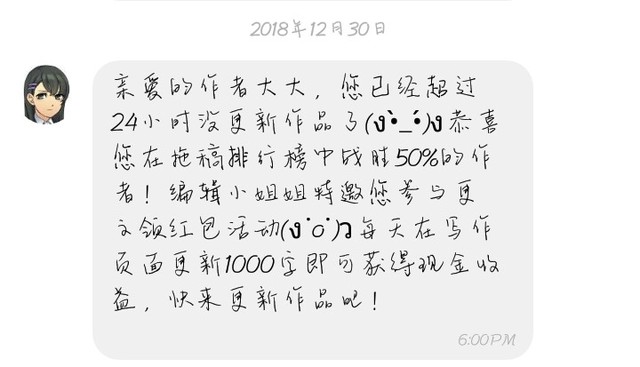 2018年12月30日
亲爱的作者大大，您已经超过
24小时没更新作品了(ง•̀_•́)ง恭喜
您在拖稿排行榜中战胜50%的作
者！编辑小姐姐特邀您参与更
文领红包活动(ง˙o˙)ว每天在写作
页面更新1000字即可获得现金收
益，快来更新作品吧！
6:00PM